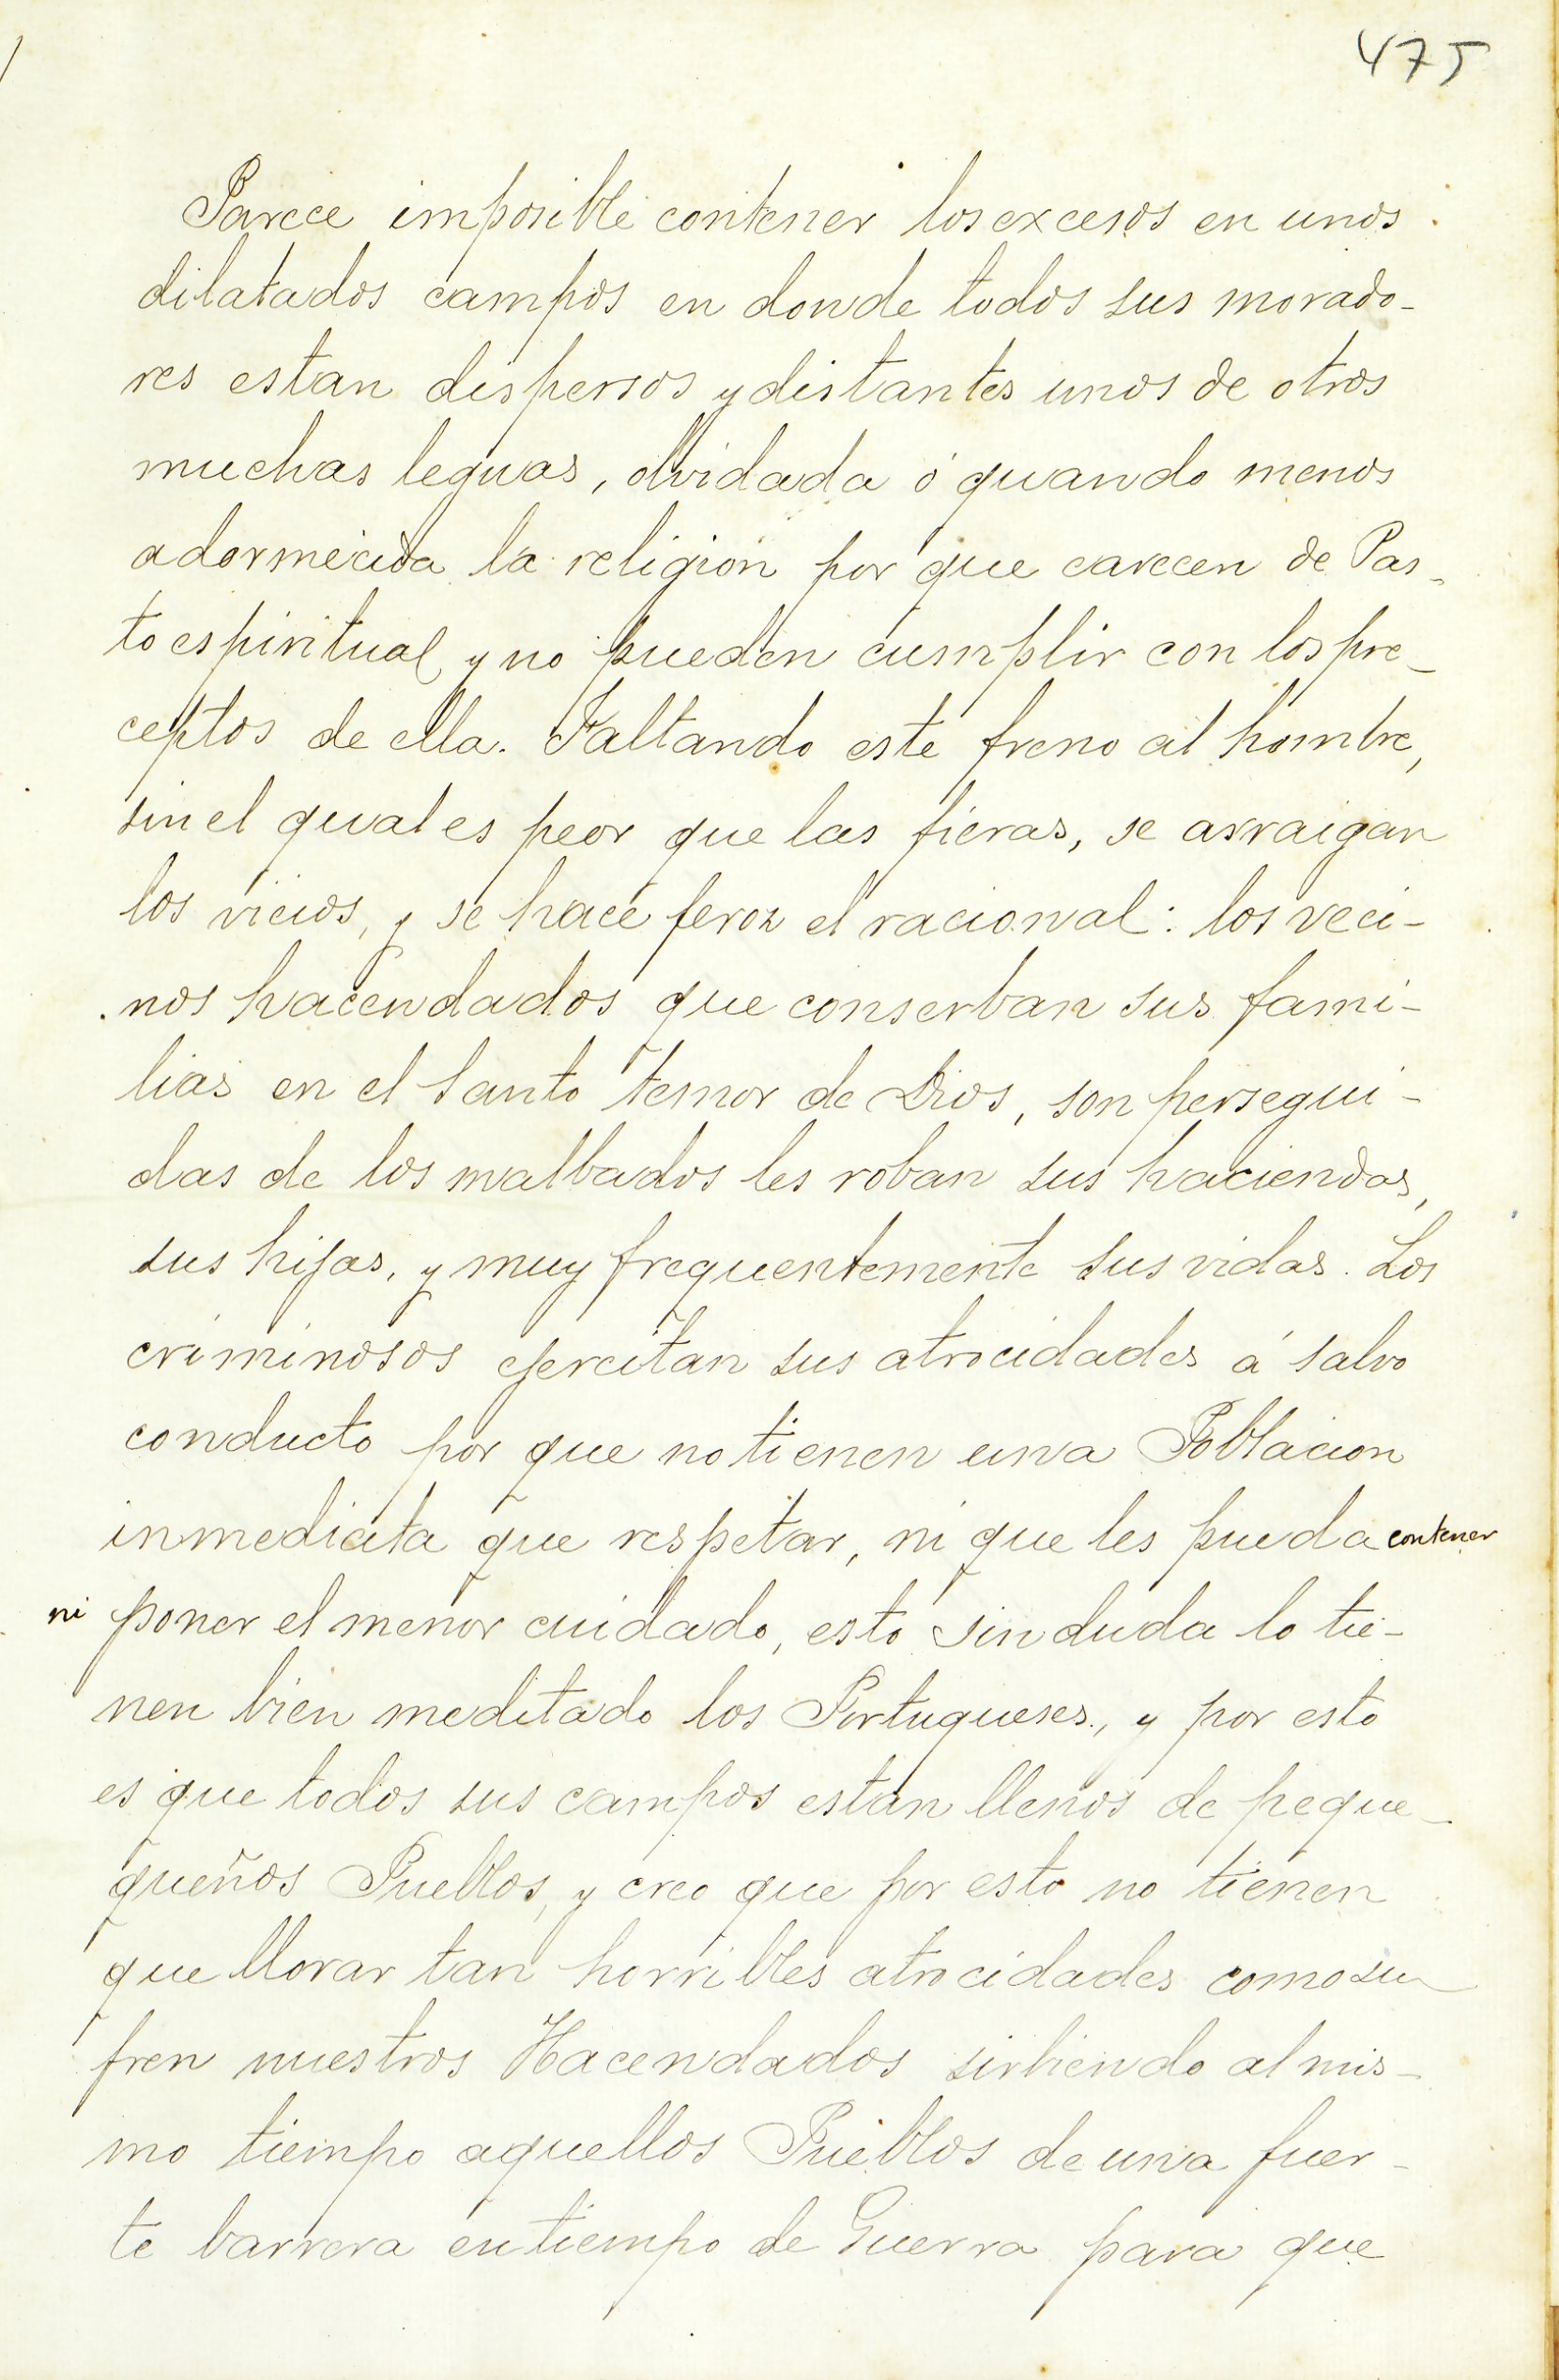 475
Parece imposible contener los excesos en unos
dilatados campos en donde todos sus morado-
res estan dispersos y distantes unos de otros
muchas leguas, olvidada ó quando menos
adormecida la religion por que carecen de Pas-
to espiritual, y no pueden cumplir con los pre-
ceptos de ella. Faltando este freno al hombre,
sin el qual es peor que las fieras, se arraigan
los vicios, y se hace feroz el racional: los veci-
nos hacendados que conserban sus fami-
lias en el Santo temor de Dios, son persegui-
das de los malbados les roban sus haciendas,
sus hijas, y muy frequentemente sus vidas. Los
criminosos ejercitan sus atrocidades á salvo
conducto por que no tienen una Poblacion
inmediata que respetar, ni que les pueda contener
ni poner el menor cuidado, esto sin duda lo tie-
nen bien meditado los Portugueses, y por esto
es que todos sus campos estan llenos de peque-
queños Pueblos, y creo que por esto no tienen
que llorar tan horribles atrocidades como su
fren nuestros Hacendados sirbiendo al mis-
mo tiempo aquellos Pueblos de una fuer-
te barrera en tiempo de Guerra para que